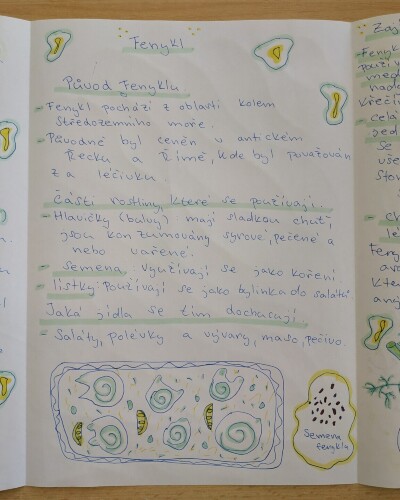 Fenykl
Původ Fenyklu
- Fenykl pochází z oblasti kolem
Středozemního moře.
- Původně byl ceněn v antickém
Řecku a Římě, kde byl považován
za léčivku.
části rostliny, které se používají:
- Hlavičky (bulvy): mají sladkou chuť,
jsou konzumovány syrové, pečené a
nebo vařené.
- semena: využívají se jako koření
- lístky: Používají se jako bylinka do salátů.
Jaká jídla se tím dochacují
- Saláty, polévky a vývary, maso, pečivo.
Semena
fenyklu
Fenykl
použív
celá
jedl
se